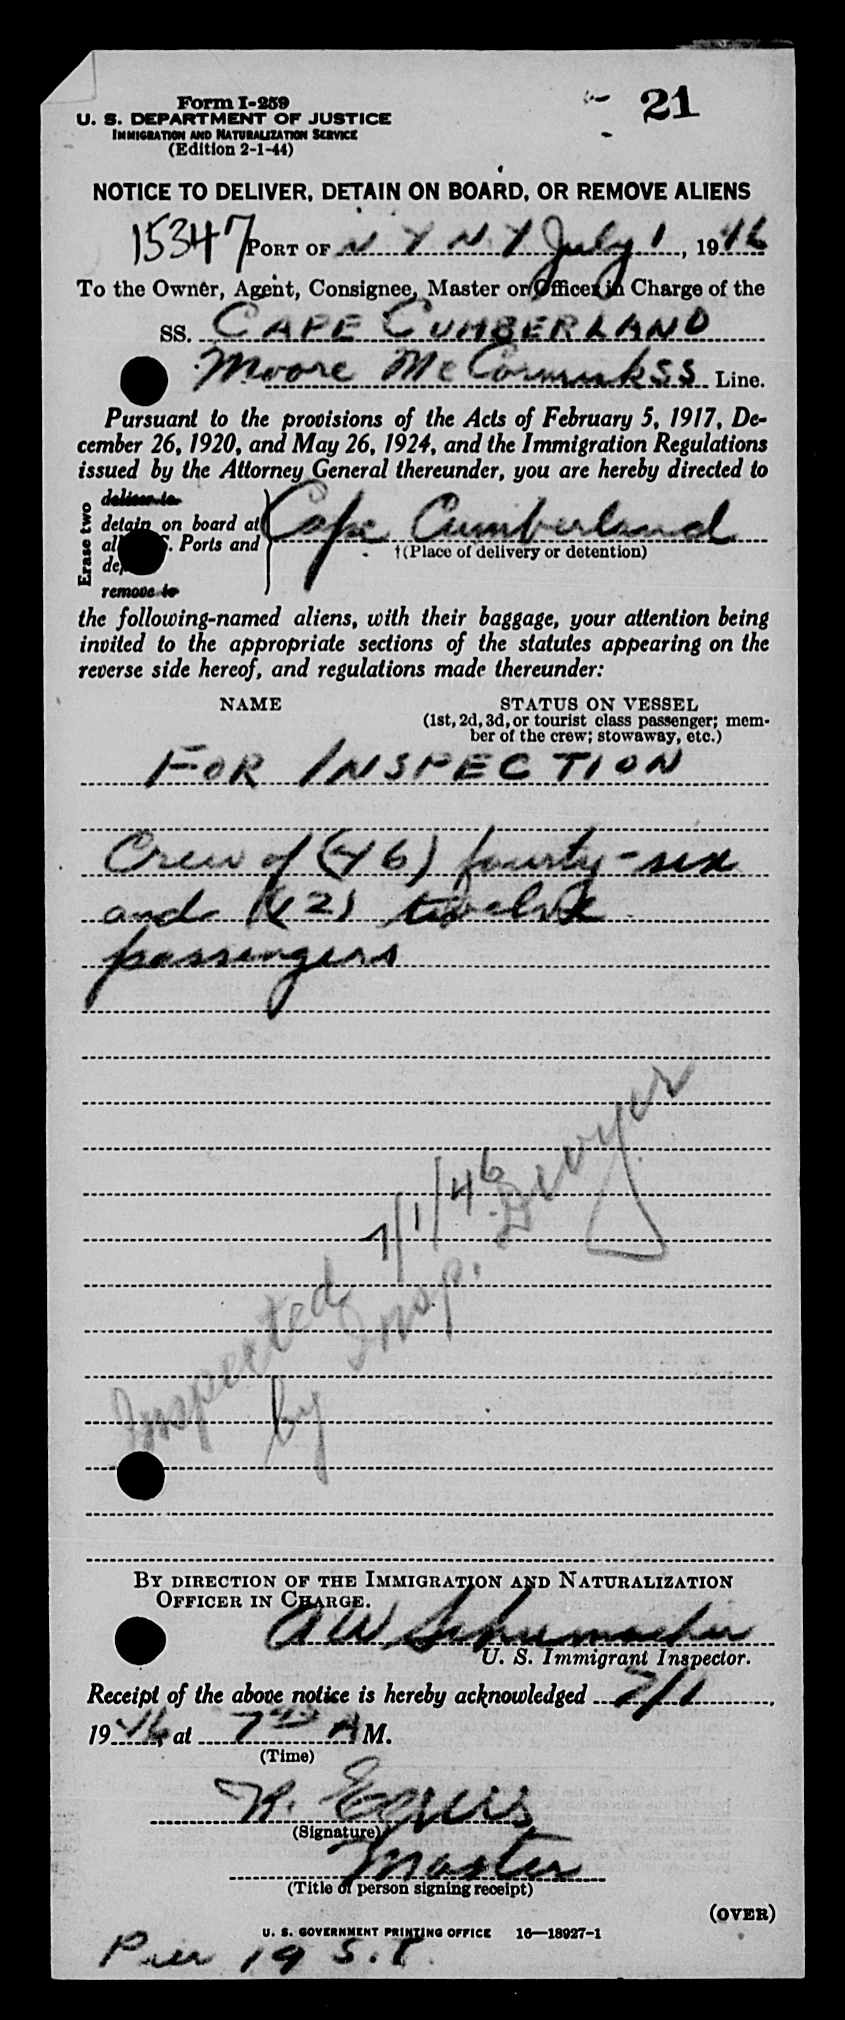 Form I-259
21
U. S. DEPARTMENT OF JUSTICE
IMMIGRATION AND NATURALIZATION SERVICE
(Edition 2-1-44)
NOTICE TO DELIVER, DETAIN ON BOARD, OR REMOVE ALIENS
15347 PORT OF N Y N Y July 1, 1946
To the Owner, Agent, Consignee, Master or Officer in Charge of the
SS. CAPE CUMBERLAND
Moore McCormick SS Line.
Pursuant to the provisions of the Acts of February 5, 1917, De-
cember 26, 1920, and May 26, 1924, and the Immigration Regulations
issued by the Attorney General thereunder, you are hereby directed to
Erase two
deliver to
detain on board at Cape Cumberland
Ports and †(Place of delivery or detention)
remove to
the following-named aliens, with their baggage, your attention being
invited to the appropriate sections of the statutes appearing on the
reverse side hereof, and regulations made thereunder:
NAME STATUS ON VESSEL
(1st, 2d, 3d, or tourist class passenger; mem-
ber of the crew; stowaway, etc.)
FOR INSPECTION
Crew of (46) fourty-six
and (12) twelve
passengers
Inspected 7/1/46
by Insp. Dwyer
BY DIRECTION OF THE IMMIGRATION AND NATURALIZATION
OFFICER IN CHARGE.
A W Schumacher
U. S. Immigrant Inspector.
Receipt of the above notice is hereby acknowledged 7/1,
1946, at 7 A M.
(Time)
(Signature)
Master
(Title of person signing receipt)
(OVER)
U. S. GOVERNMENT PRINTING OFFICE 16—18927-1
Pier 19 S.I.